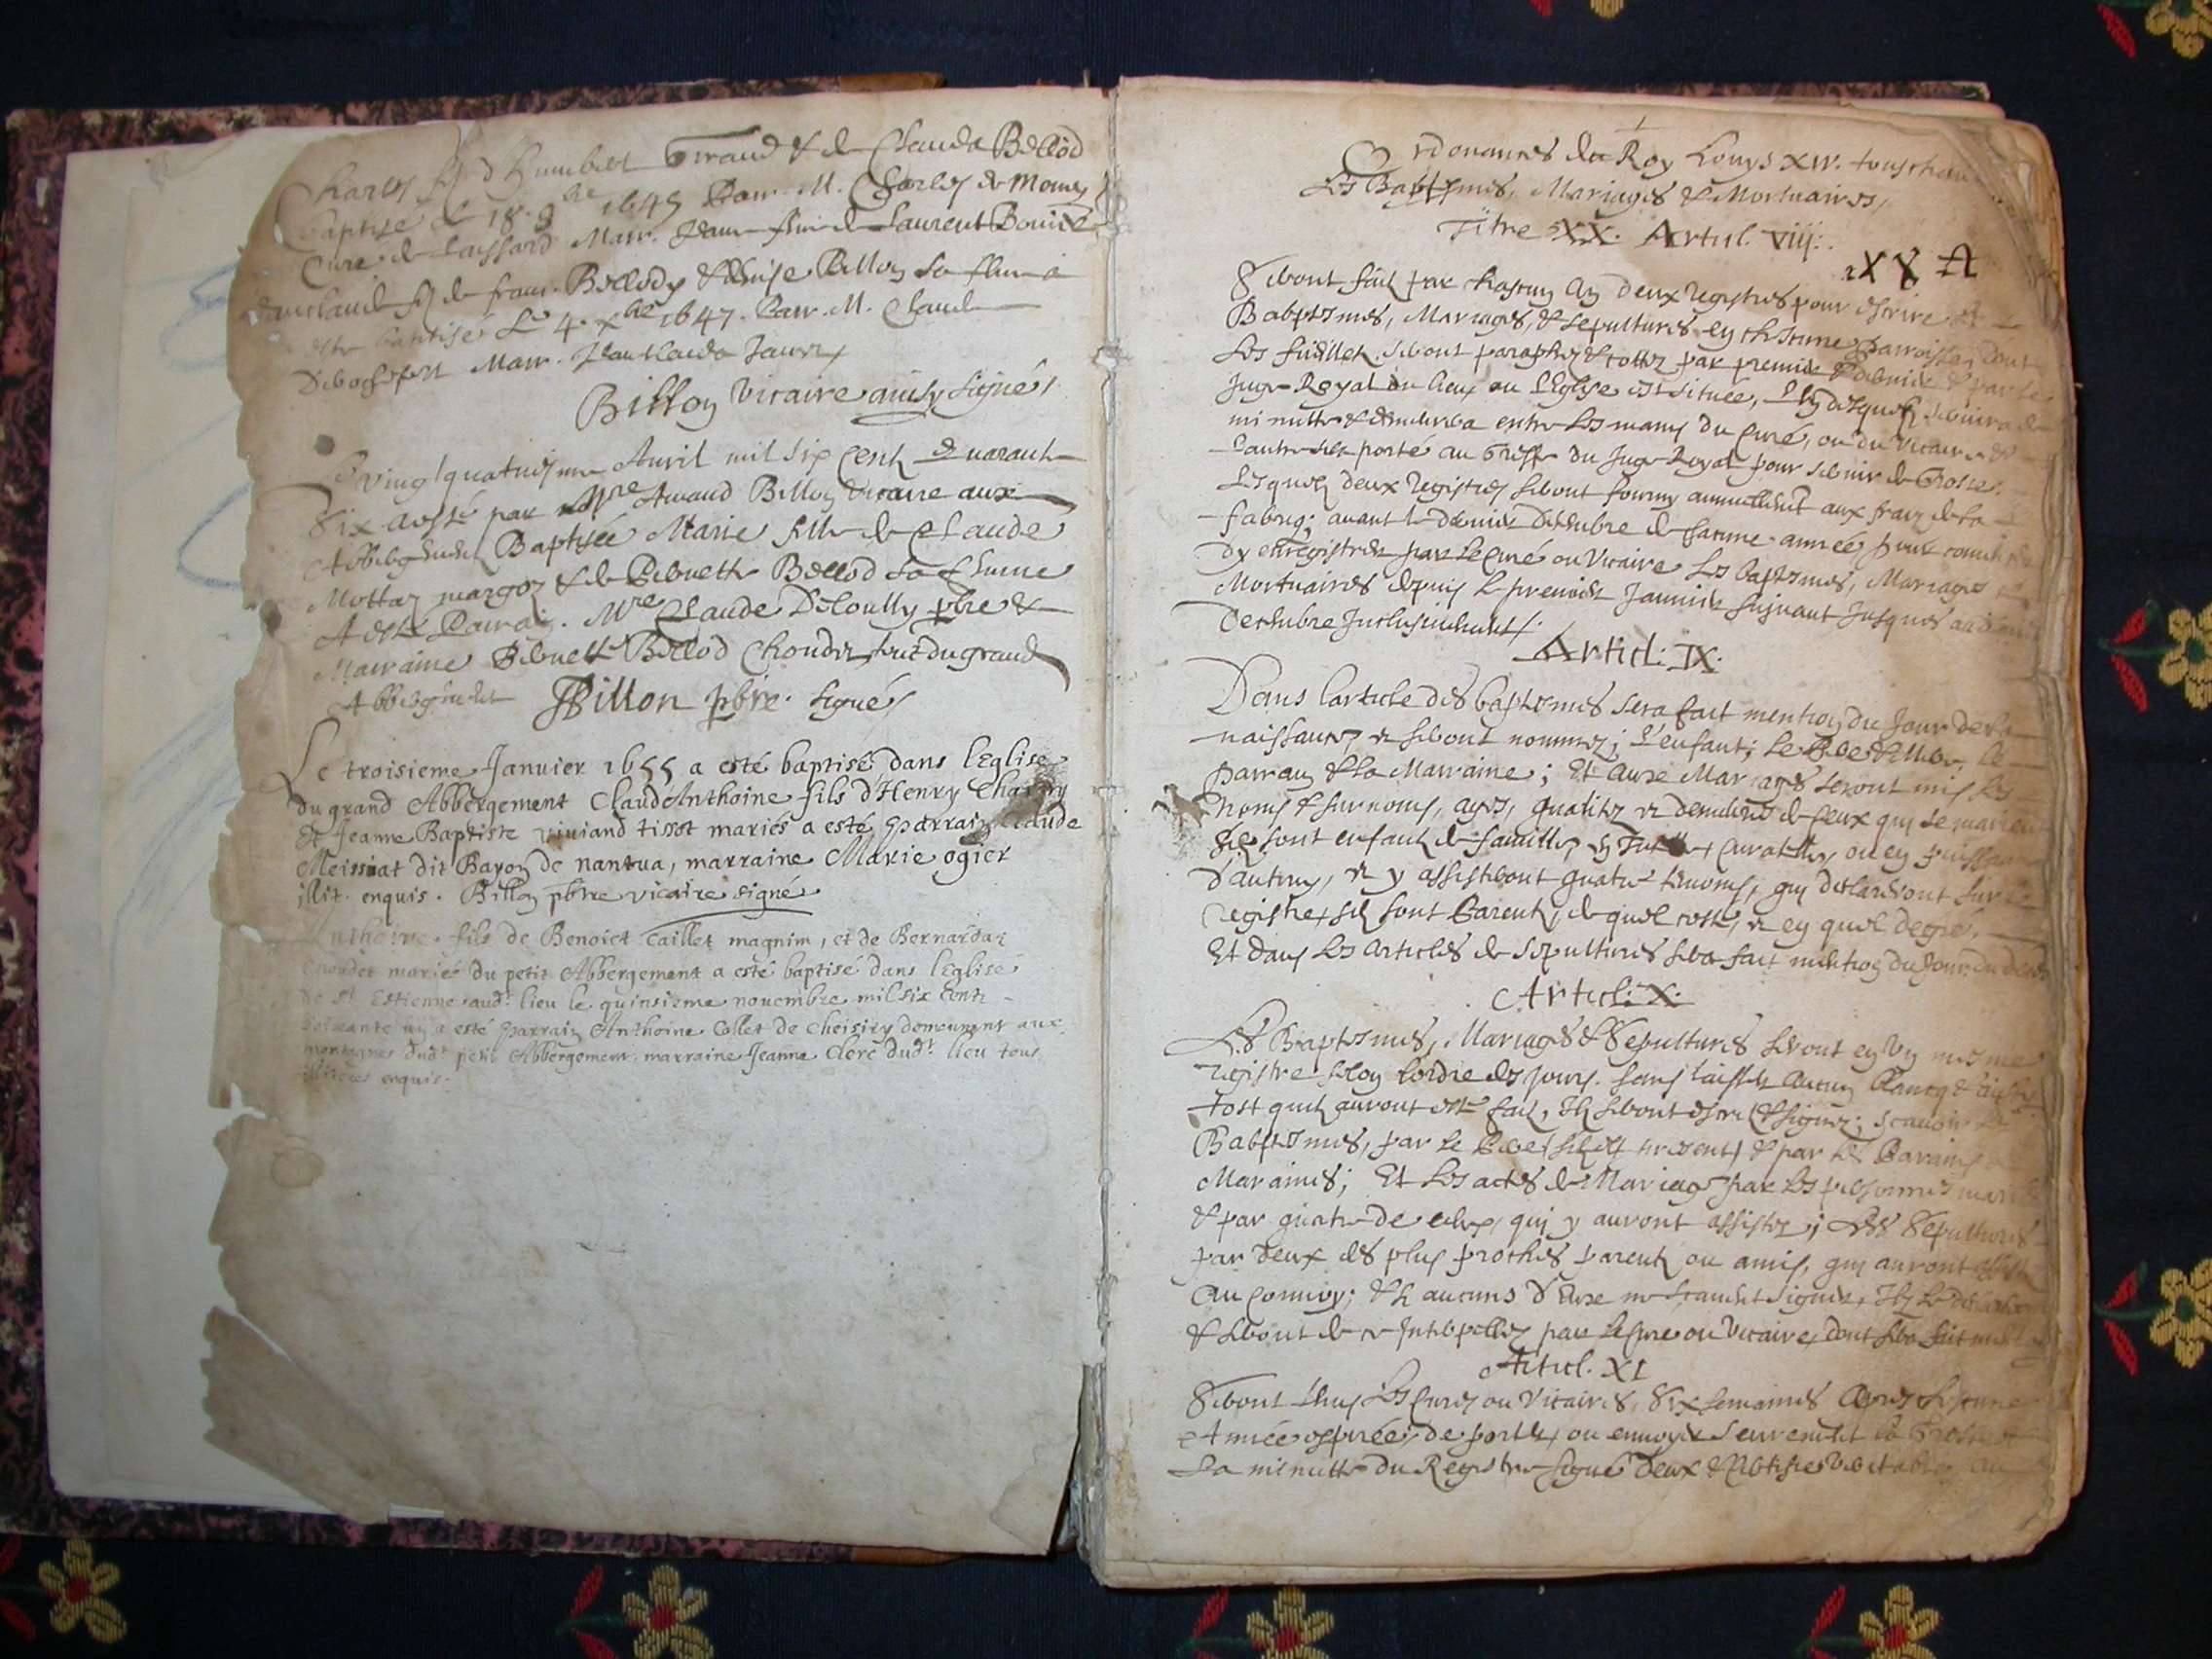 Charles fs d'Humbert Giraud & de Clauda Bellod
baptisé le 18. 1645 Parr. M. Charles de
Curé de Marr. feme de Laurent
Jeanclaude fs de franc. Bellody & Billoy sa feme a
esté baptisé Le 4. xbre 1647. Parr. M. Claude
Marr. Jeanclauda
Billoy Vicaire ainsy signé
Le vingt quatriesme Auril mil six Cent quarante
Six a esté par Mre Billoy vicaire aux
Abbergemens Baptisée Marie fille de Claude
Mottaz margoz & de Pernette Bellod sa femme
A esté Parrain. Mre Claude pbre &
Marraine Pernette Bellod Choudez tout du grand
Abbergement Billon pbre. signé
Le troisieme Januier 1655 a esté baptisé dans l'Eglise
du grand Abbergement ClaudeAnthoine fils d'Henry
Et Jeanne Baptiste viuiand tissot mariés a esté parrain Claude
Meissiat dit Baron de nantua, marraine Marie ogier
illit. enquis. Billoy pbtre vicaire signé
Anthoine. fils de Benoict Caillet magnim, et de Bernardaz
Choudet mariés du petit Abbergement a esté baptisé dans l'Eglise
de St Estienne audt. lieu le quinsieme nouembre mil six Cents
soixante un a esté parrain Anthoine Collet de Cheisiry demeurant aux
montagnes dudt petit Abbergement, marraine Jeanne Clerc dudt. lieu tous
illiteres enquis.
1
Ordonances du Roy Louys XIV. touschant
Les Baptesmes, Mariages & Mortuaires,
Titre XX. Articl. viij.
Seront faits par chascun an deux registres pour escrire les
Baptesmes, Mariages, & sepultures en chascune parroisse, dont
Les fueillets seront paraphez & cottez par premier & dernier & par le
Juge Royal du lieu ou l'Eglise est située, L'un desquels seruira de
minutte & demeurera entre les mains du curé, ou du vicaire &
L'autre sera porté au Greffe du Juge Royal pour seruir de Grosse.
Lesquels deux registres seront fournis annuellement aux frais de la
fabriq; auant le dernier Decembre de chacune année pour commencer
D'y enregistrer par le Curé ou Vicaire Les baptesmes, Mariages &
Mortuaires depuis le premier Januier suiuant Jusques au dernier
Decembre Inclusiuement.
Articl: IX.
Dans l'article des baptesmes sera fait mention du Jour de la
naissance & seront nommez; L'enfant; Le Pere & Mere, le
parrain & la Marraine; Et aux Mariages seront mis les
Noms & surnoms, ages, qualitez & demeures de ceux qui se marient
s'ils sont enfants de famille, en Tutelle, curatelle, ou en puissance
d'autruy, & y assisteront quatre tesmoins, qui declareront sur le
registre, s'ils sont Parents, de quel costé, & en quel degré.
Et dans les articles de sepultures sera fait mention du Jour du deces
Articl: X.
Les Baptesmes, Mariages & Sepultures seront en un mesme
registre selon l'ordre des jours. sans laisser aucun blancq & aussi
tost quils auront esté faits, Ils seront escrits & signez; scauoir les
Baptesmes, par le Pere (s'il est present) & par les Parains &
Maraines; Et les actes de Mariage par les personnes mariées
& par quatre de ceux, qui y auront assistez; Les Sepultures
par deux des plus proches parents ou amis, qui auront assisté
au conuoy; & si aucuns d'eux ne scauent signer, Ils le declareront
& seront de ce Interpellez par le Curé ou Vicaire, dont sera fait mention
Articl. XI
Seront tenus Les Curés ou Vicaires, Six semaines apres chascune
Année expirée, de porter, ou enuoyer seurement la Grosse &
La minutte du Registre signé d'eux & Certifié veritable au